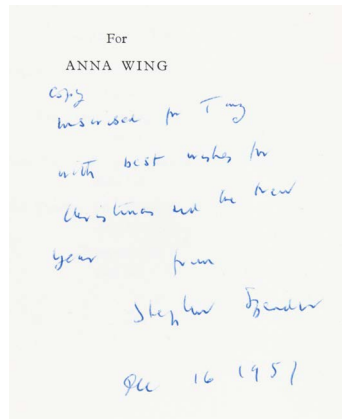 For
ANNA WING
copy
inscribed for Tony
with best wishes for
Christmas and the New
Year from
Stephen Spender
Dec 16 1957